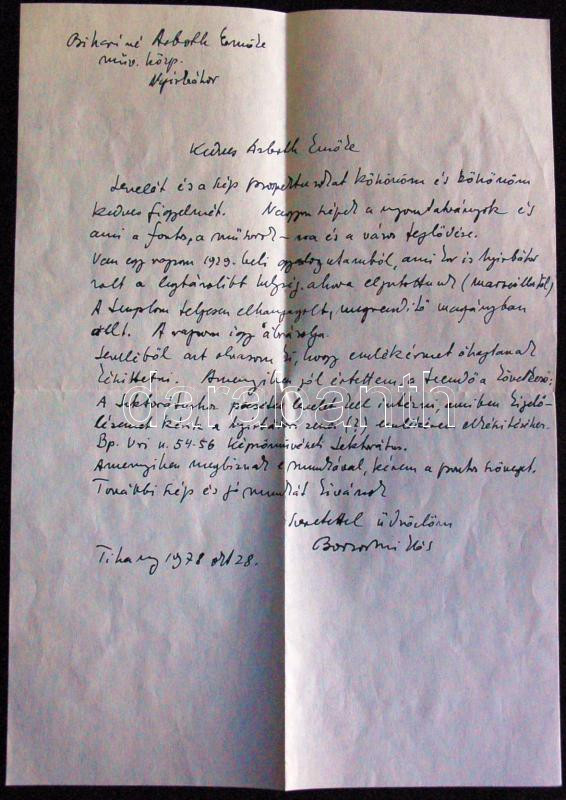 Bihariné Asboth Emőke
műv. közp.
Nyírbátor
Kedves Asboth Emőke
Levelét és a szép prospektusokat köszönöm és köszönöm
kedves figyelmét. Nagyon szépek a nyomtatványok és
ami a fontos, a műsora és a város fejlődése.
Van egy rajzom 1929. beli gyalogutamból, ami Er is Nyírbátor
volt a legtávolibb helység ahova eljutottunk
A templom teljesen elhanyagolt, megrendítő magányban
állt. A rajzom így ábrázolja.
Leveléből azt olvasom ki, hogy emlékérmet óhajtanak
készíttetni. Amennyiben jól értettem a teendő a következő:
A Lektorátushoz levelet kell intézni, miben kijelö-
lésemet kérik a nyírbátori emlékérem elkészítésére.
Bp. Uri u. 54-56 Képzőművészeti Lektorátus.
Amennyiben megbíznak e munkával, kérem a pontos szöveget.
További szép és jó munkát kívánok
szeretettel üdvözlöm
Borsos Miklós
Tihany 1978 okt 28.
darabanth